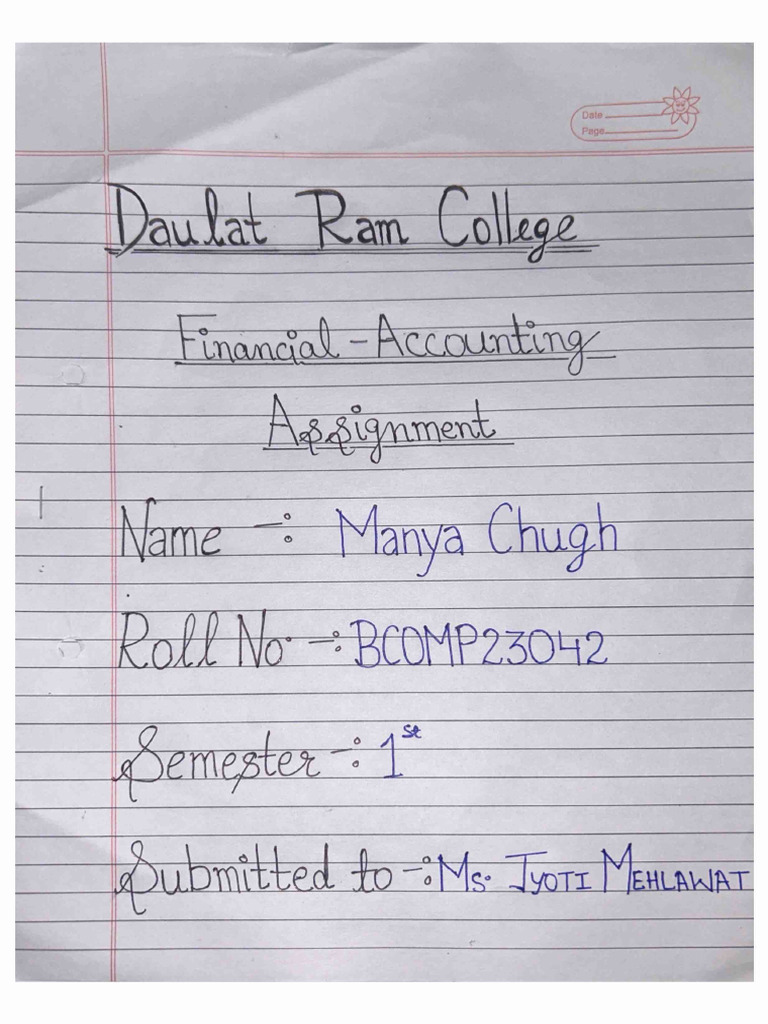 Date
Page
Daulat Ram College
Financial - Accounting
Assignment
Name -: Manya Chugh
Roll No. -: BCOMP23042
Semester -: 1st
Submitted to -: Ms. JYOTI MEHLAWAT